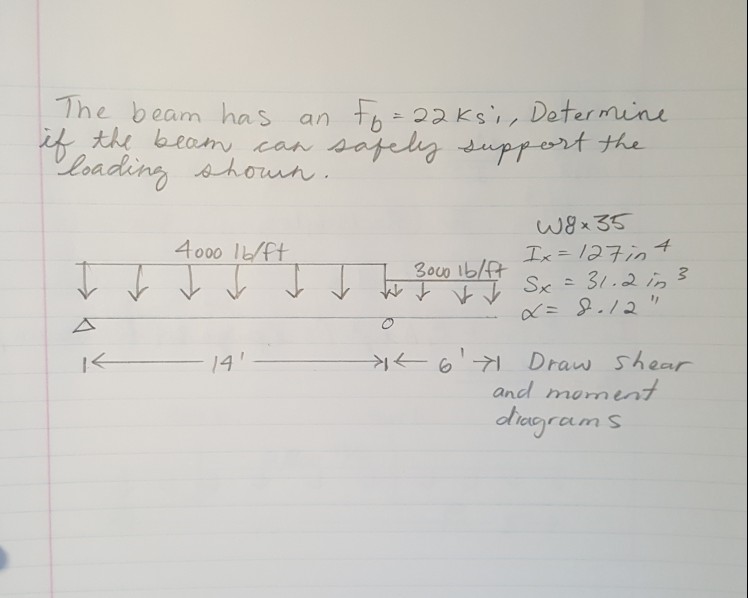 The beam has an Fb = 22 ksi, Determine
if the beam can safely support the
loading shown.
W8x35
4000 lb/ft
Ix = 127 in 4
3000 lb/ft
Sx = 31.2 in 3
α = 8.12 "
14'
6'
Draw shear
and moment
diagrams